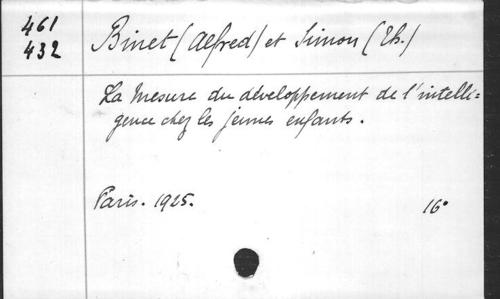 461
432
Binet (Alfred) et Simon (Th.)
La Mesure du développement de l'intelli=
gence chez les jeunes enfants.
Paris. 1925.
16°